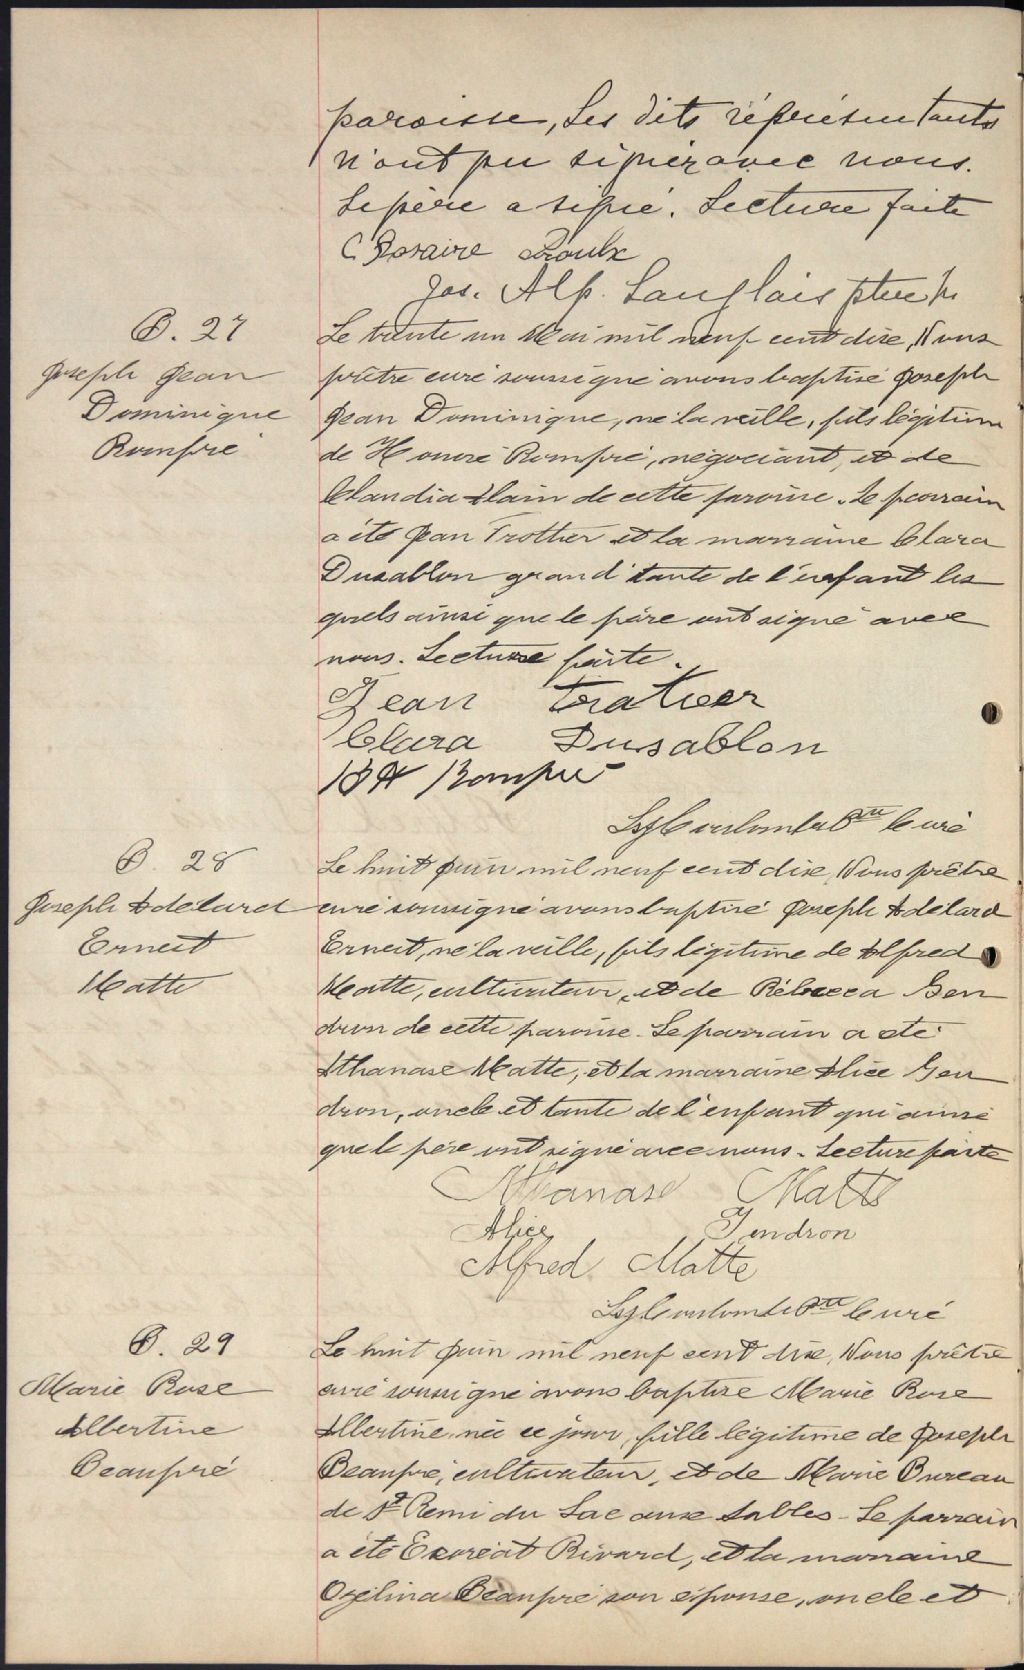 paroisse, Les dits représentants
n'ont pu signer avec nous.
Le père a signé. Lecture faite
C Rosaire Proulx
Jos. Alp. Langlais ptre
B. 27
Joseph Jean
Dominique
Rompré
Le trente un Mai mil neuf cent dix, Nous
prêtre curé soussigné avons baptisé Joseph
Jean Dominique, né la veille, fils légitime
de Honoré Rompré, négociant, et de
Claudia Alain de cette paroisse. Le parrain
a été Jean Trottier et la marraine Clara
Dusablon grand'tante de l'enfant les
quels ainsi que le père ont signé avec
nous. Lecture faite.
Jean Tratier
Clara Dusablon
Rompré
Coulombe Ptre Curé
B. 28
Joseph Adélard
Ernest
Matte
Le huit Juin mil neuf cent dix, Nous prêtre
curé soussigné avons baptisé Joseph Adélard
Ernest, né la veille, fils légitime de Alfred
Matte, cultivateur, et de Rébecca Gen
dron de cette paroisse. Le parrain a été
Athanase Matte, et la marraine Alice Gen
dron, oncle et tante de l'enfant qui ainsi
que le père ont signé avec nous. Lecture faite
Athanase Matte
Alice Gendron
Alfred Matte
Coulombe Ptre Curé
B. 29
Marie Rose
Albertine
Beaupré
Le huit Juin mil neuf cent dix, Nous prêtre
curé soussigné avons baptisé Marie Rose
Albertine née ce jour, fille légitime de Joseph
Beaupré, cultivateur, et de Marie Bureau
de St Remi du Lac aux Sables. Le parrain
a été Exoréat Rivard, et la marraine
Ozélina Beaupré son épouse, oncle et